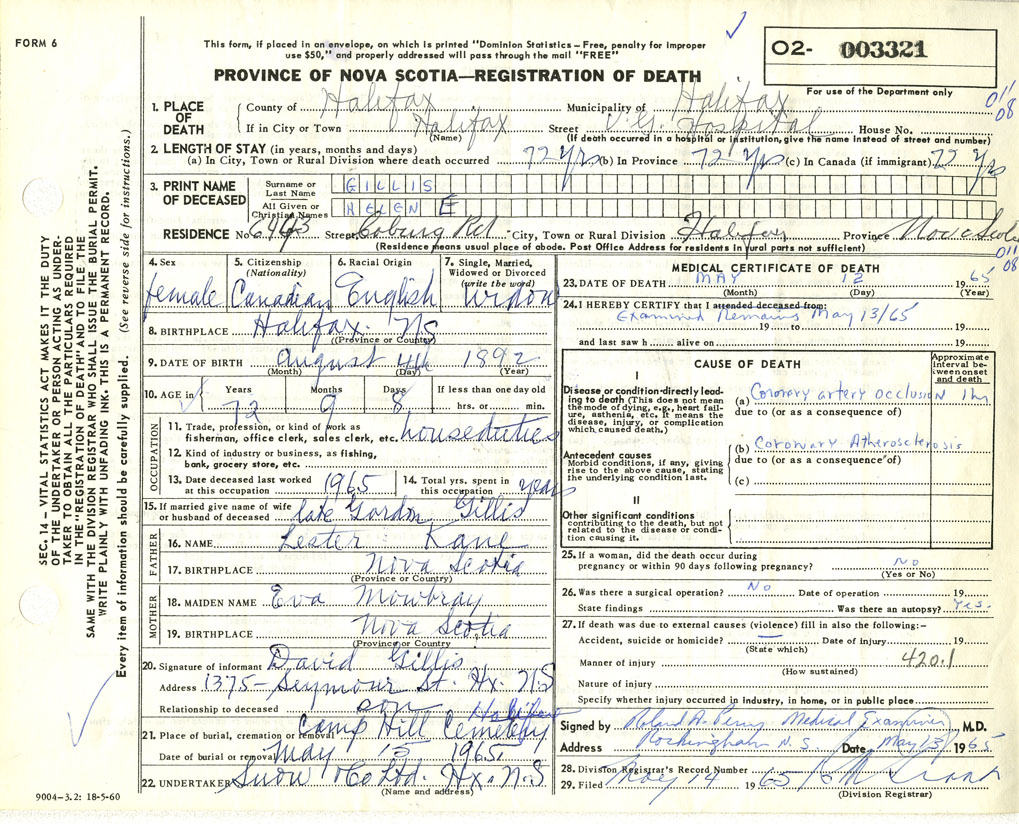 FORM 6
This form, if placed in an envelope, on which is printed "Dominion Statistics – Free, penalty for improper
use $50," and properly addressed will pass through the mail "FREE"
PROVINCE OF NOVA SCOTIA—REGISTRATION OF DEATH
02- 003321
For use of the Department only
011
08
1. PLACE OF DEATH County of Halifax Municipality of Halifax
If in City or Town Halifax Street V.G. Hospital House No.
(Name) (If death occurred in a hospital or institution, give the name instead of street and number)
2. LENGTH OF STAY (in years, months and days)
(a) In City, Town or Rural Division where death occurred 72 Yrs (b) In Province 72 Yrs (c) In Canada (if immigrant) 72 Yrs
3. PRINT NAME OF DECEASED Surname or Last Name GILLIS
All Given or Christian Names HELEN E
RESIDENCE No. Street Coburg Rd City, Town or Rural Division Halifax Province Nova Scotia
(Residence means usual place of abode. Post Office Address for residents in rural parts not sufficient)
011
08
4. Sex female
5. Citizenship (Nationality) Canadian
6. Racial Origin English
7. Single, Married, Widowed or Divorced (write the word) Widow
8. BIRTHPLACE Halifax NS
(Province or Country)
9. DATE OF BIRTH August 4th 1892
(Month) (Day) (Year)
10. AGE in Years 72 Months 9 Days 8 If less than one day old hrs. or min.
OCCUPATION
11. Trade, profession, or kind of work as
fisherman, office clerk, sales clerk, etc. houseduties
12. Kind of industry or business, as fishing,
bank, grocery store, etc.
13. Date deceased last worked at this occupation 1965
14. Total yrs. spent in this occupation years
15. If married give name of wife or husband of deceased late Gordon Gillis
FATHER
16. NAME Lester Kane
17. BIRTHPLACE Nova Scotia
(Province or Country)
MOTHER
18. MAIDEN NAME Eva Mowbray
19. BIRTHPLACE Nova Scotia
(Province or Country)
20. Signature of informant David Gillis
Address 1375 – Seymour St. Hx. NS
Relationship to deceased son
Halifax
21. Place of burial, cremation or removal Camp Hill Cemetery
Date of burial or removal May 15 1965
22. UNDERTAKER Snow & Co Ltd. Hx. N.S
(Name and address)
MEDICAL CERTIFICATE OF DEATH
23. DATE OF DEATH MAY 12 1965
(Month) (Day) (Year)
24. I HEREBY CERTIFY that I attended deceased from:
Examined Remains May 13/65
19 to 19
and last saw h alive on 19
CAUSE OF DEATH
Approximate interval between onset and death
I
Disease or condition directly leading to death (This does not mean the mode of dying, e.g., heart failure, asthenia, etc. It means the disease, injury, or complication which caused death.)
(a) Coronary artery occlusion 1 hr
due to (or as a consequence of)
Antecedent causes
Morbid conditions, if any, giving rise to the above cause, stating the underlying condition last.
(b) Coronary Atherosclerosis
due to (or as a consequence of)
(c)
II
Other significant conditions
contributing to the death, but not related to the disease or condition causing it.
25. If a woman, did the death occur during
pregnancy or within 90 days following pregnancy? No
(Yes or No)
26. Was there a surgical operation? No Date of operation 19
State findings Was there an autopsy? Yes.
27. If death was due to external causes (violence) fill in also the following:–
Accident, suicide or homicide? — Date of injury 19
(State which)
Manner of injury 420.1
(How sustained)
Nature of injury
Specify whether injury occurred in industry, in home, or in public place
Signed by Roland A. Perry Medical Examiner M.D.
Address Rockingham N.S. Date May 13/ 1965
28. Division Registrar's Record Number
29. Filed May 14 1965
(Division Registrar)
SEC. 14 – VITAL STATISTICS ACT MAKES IT THE DUTY
OF THE UNDERTAKER OR PERSON ACTING AS UNDER-
TAKER TO OBTAIN ALL THE PARTICULARS REQUIRED
IN THE "REGISTRATION OF DEATH" AND TO FILE THE
SAME WITH THE DIVISION REGISTRAR WHO SHALL ISSUE THE BURIAL PERMIT.
WRITE PLAINLY WITH UNFADING INK. THIS IS A PERMANENT RECORD.
Every item of information should be carefully supplied. (See reverse side for instructions.)
9004–3.2: 18-5-60